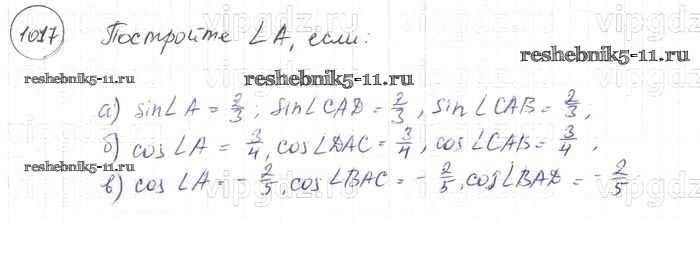 1017 Постройте ∠A, если:
reshebnik5-11.ru
reshebnik5-11.ru reshebnik5-11.ru
а) sin∠A = 2/3; sin∠CAD = 2/3, sin∠CAB = 2/3,
б) cos∠A = 3/4, cos∠DAC = 3/4, cos∠CAB = 3/4,
reshebnik5-11.ru
в) cos∠A = - 2/5, cos∠BAC = - 2/5, cos∠BAD = - 2/5
vipgdz